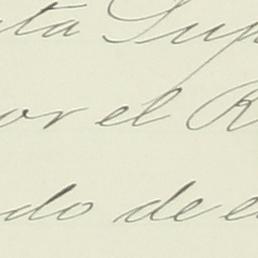 ta Sup
or el R
do de e